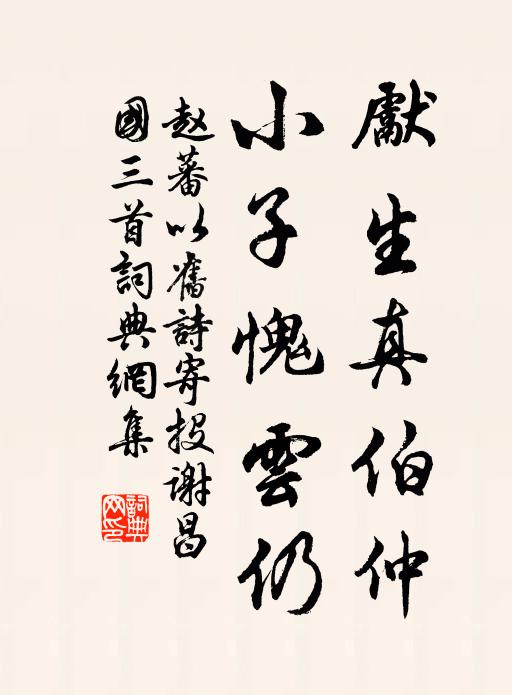 獻生真伯仲
小子愧雲仍
赵蕃以舊詩寄投谢昌
國三首詞典網集
詞典
网印